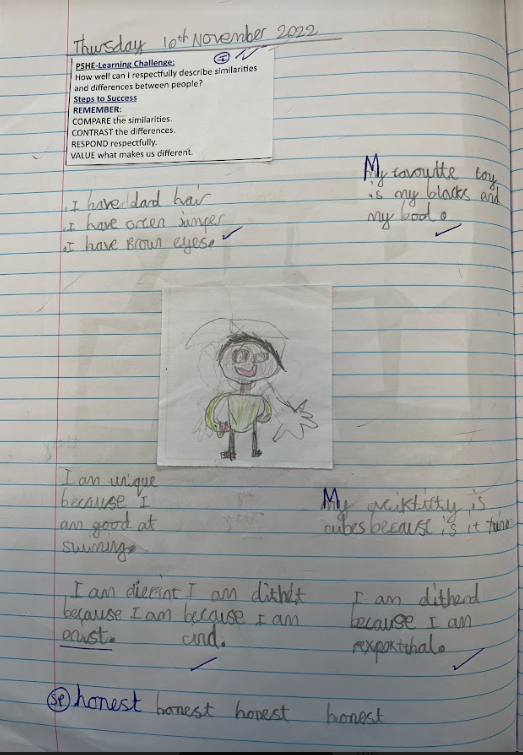 Thursday 10th November 2022
PSHE-Learning Challenge:
How well can I respectfully describe similarities
and differences between people?
Steps to Success
REMEMBER:
COMPARE the similarities.
CONTRAST the differences.
RESPOND respectfully.
VALUE what makes us different.
My favourite toy
is my blocks and
my
. I have hair
. I have green jumper
. I have Brown eyes.
I am unique
because I
am good at
My is
because is it
I am
because I am
I am
because I am
I am
because I am
sp honest honest honest honest